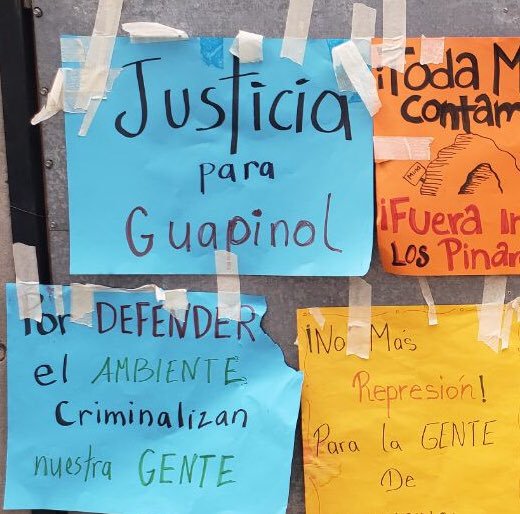 Justicia
para
Guapinol
¡Toda M
contam
Mina
¡Fuera In
Los Pinar
Por DEFENDER
el AMBIENTE
Criminalizan
nuestra GENTE
¡No Más
Represión!
Para la GENTE
De